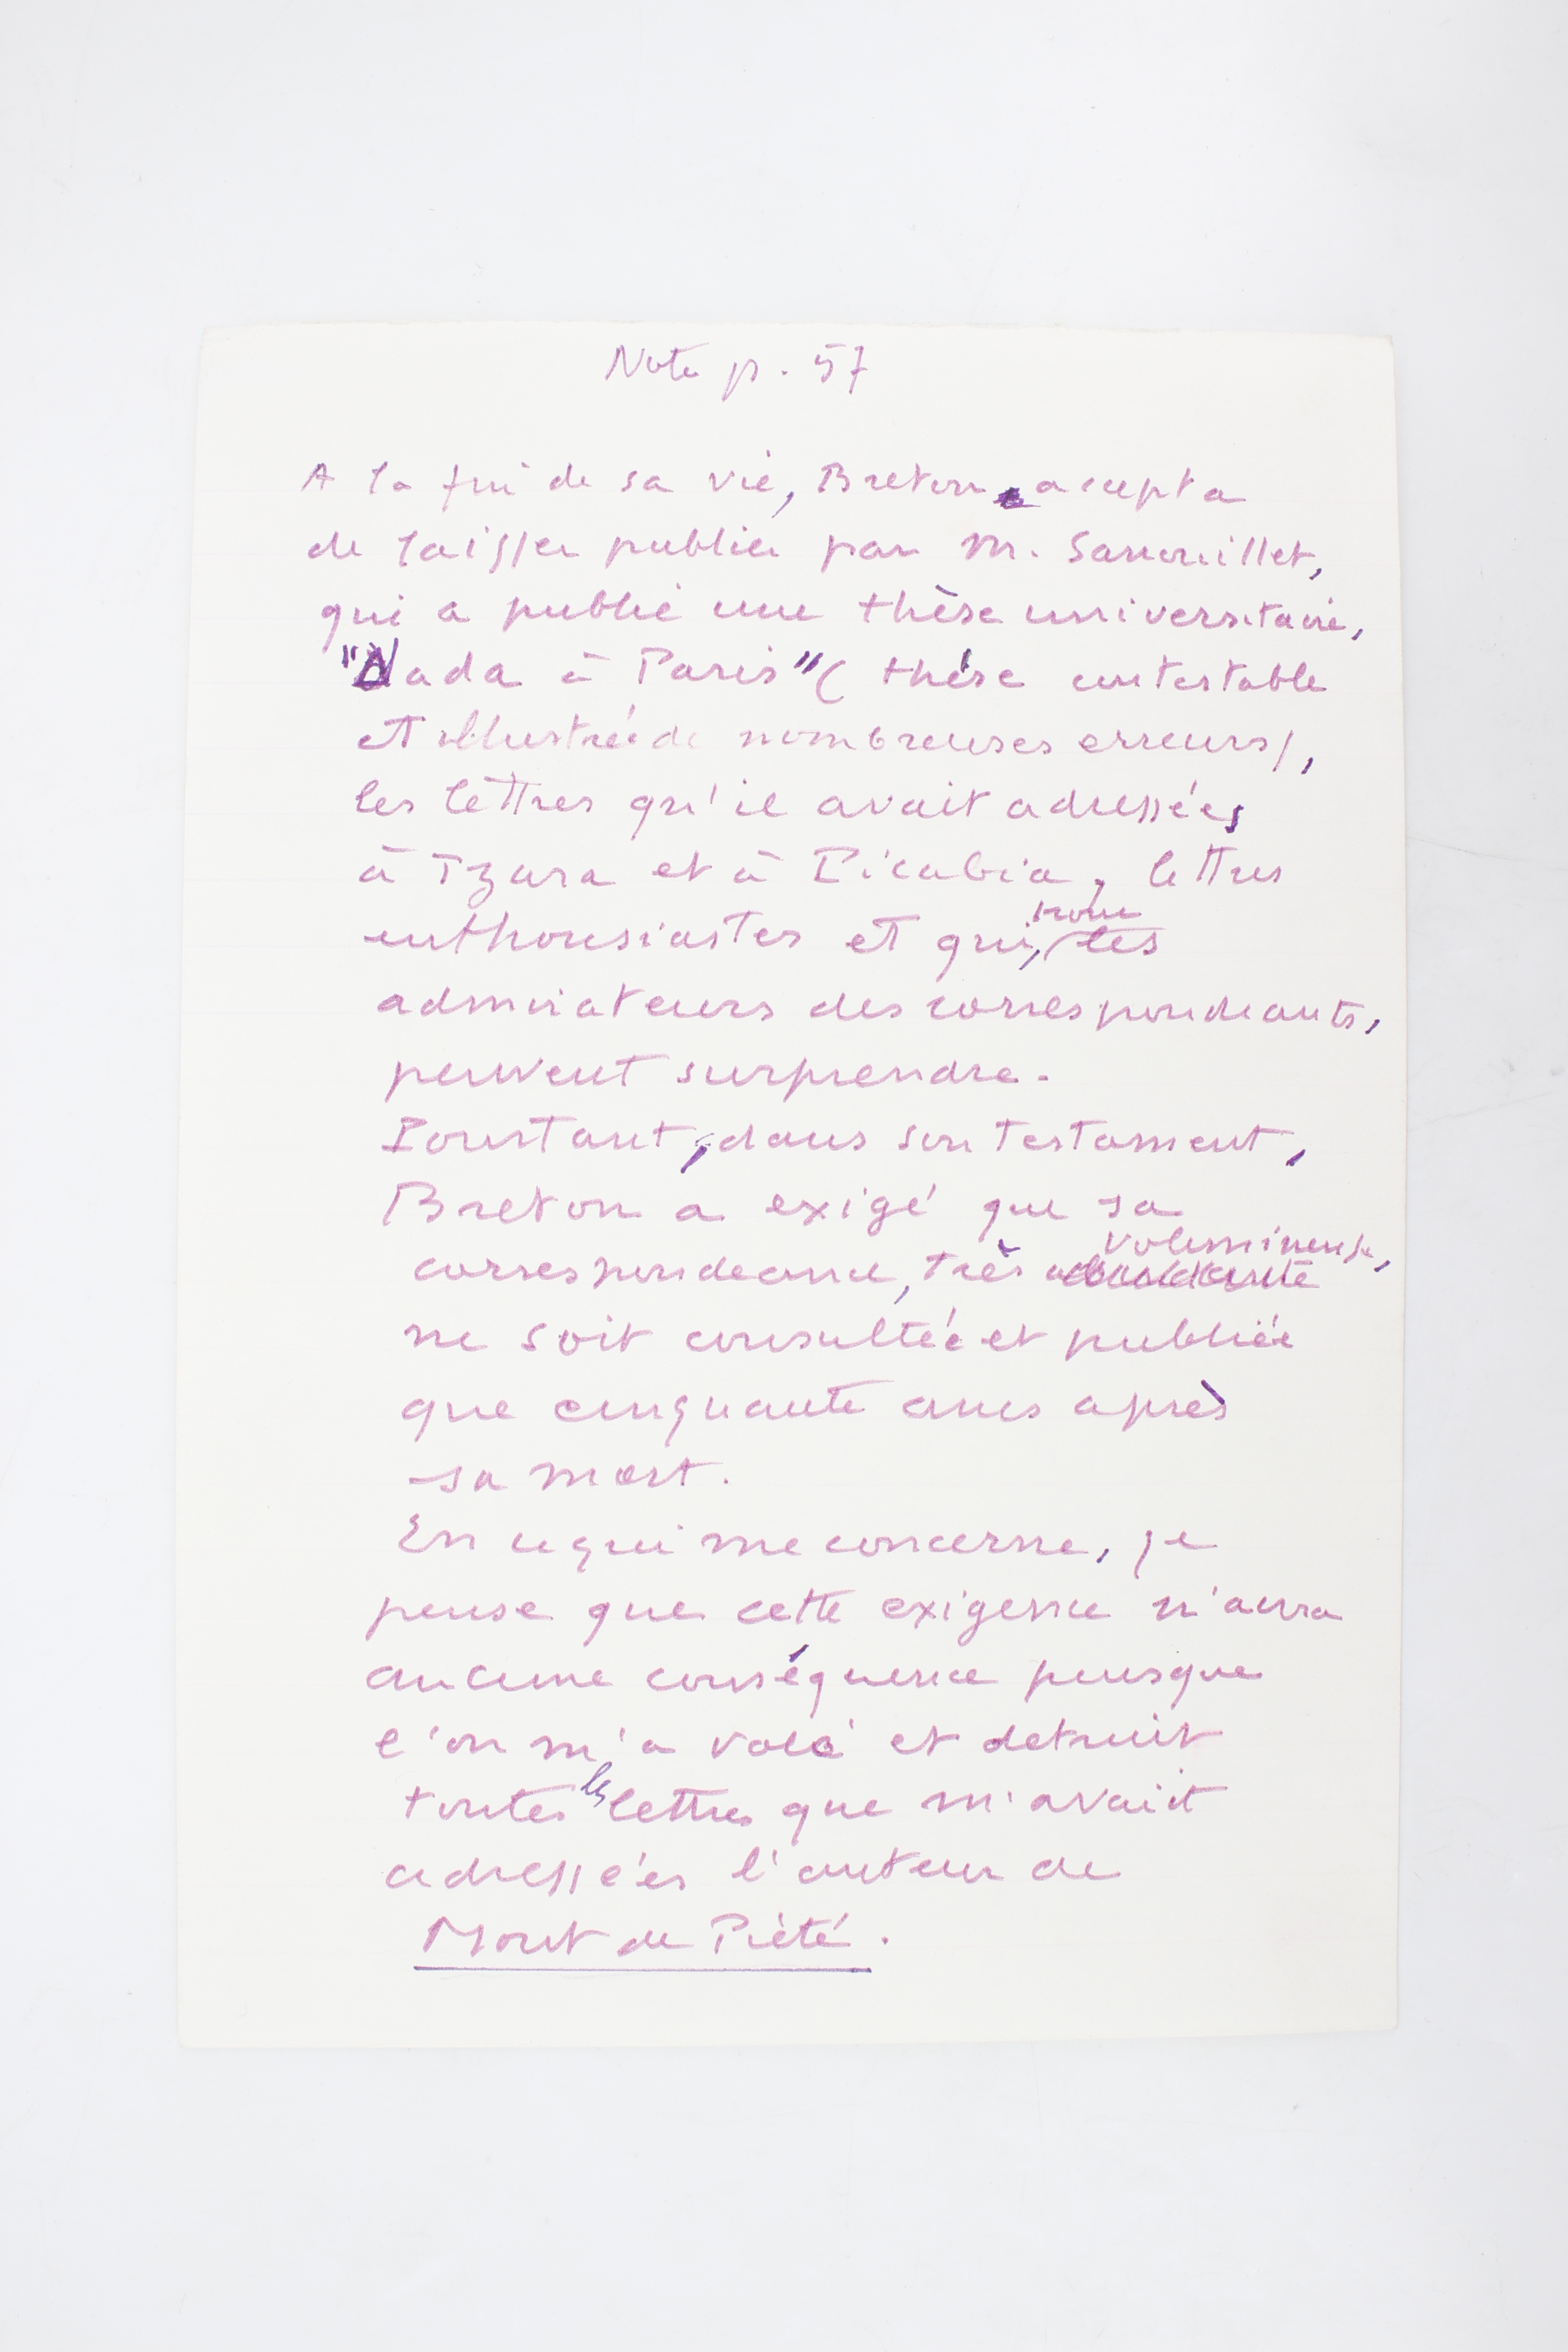 Note p. 57
A la fin de sa vie, Breton accepta
de laisser publier par M. Sanouillet,
qui a publié une thèse universitaire,
"Dada à Paris" (thèse contestable
et illustrée de nombreuses erreurs),
les lettres qu'il avait adressées
à Tzara et à Picabia, lettres
enthousiastes et qui, pour les
admirateurs des correspondants,
peuvent surprendre.
Pourtant, dans son testament,
Breton a exigé que sa
correspondance, très volumineuse,
ne soit consultée et publiée
que cinquante ans après
sa mort.
En ce qui me concerne, je
pense que cette exigence n'aura
aucune conséquence puisque
l'on m'a volé et detruit
toutes les lettres que m'avait
adressées l'auteur de
Mont de Piété.